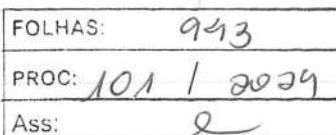 FOLHAS: 943
PROC: 101 / 2024
Ass: